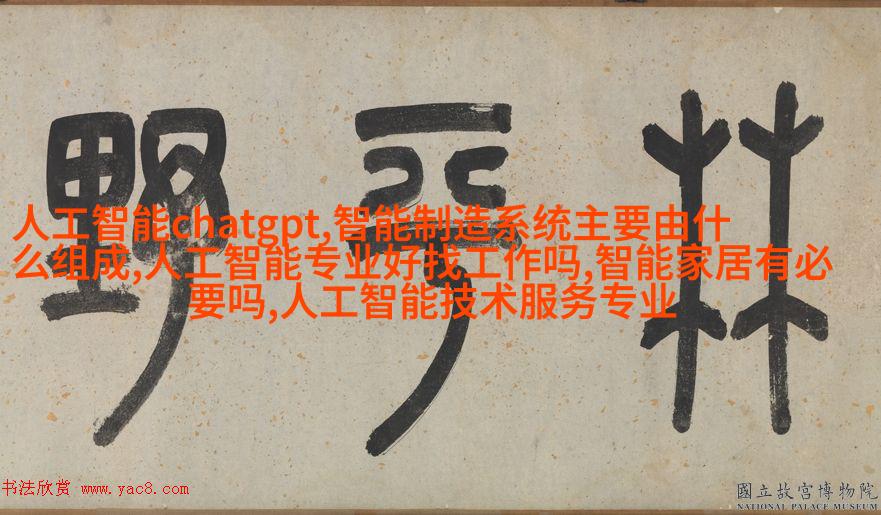 林平野
人工智能chatgpt,智能制造系统主要由什
么组成,人工智能专业好找工作吗,智能家居有必
要吗,人工智能技术服务专业
书法欣赏 www.yac8.com
國立故宮博物院
NATIONAL PALACE MUSEUM